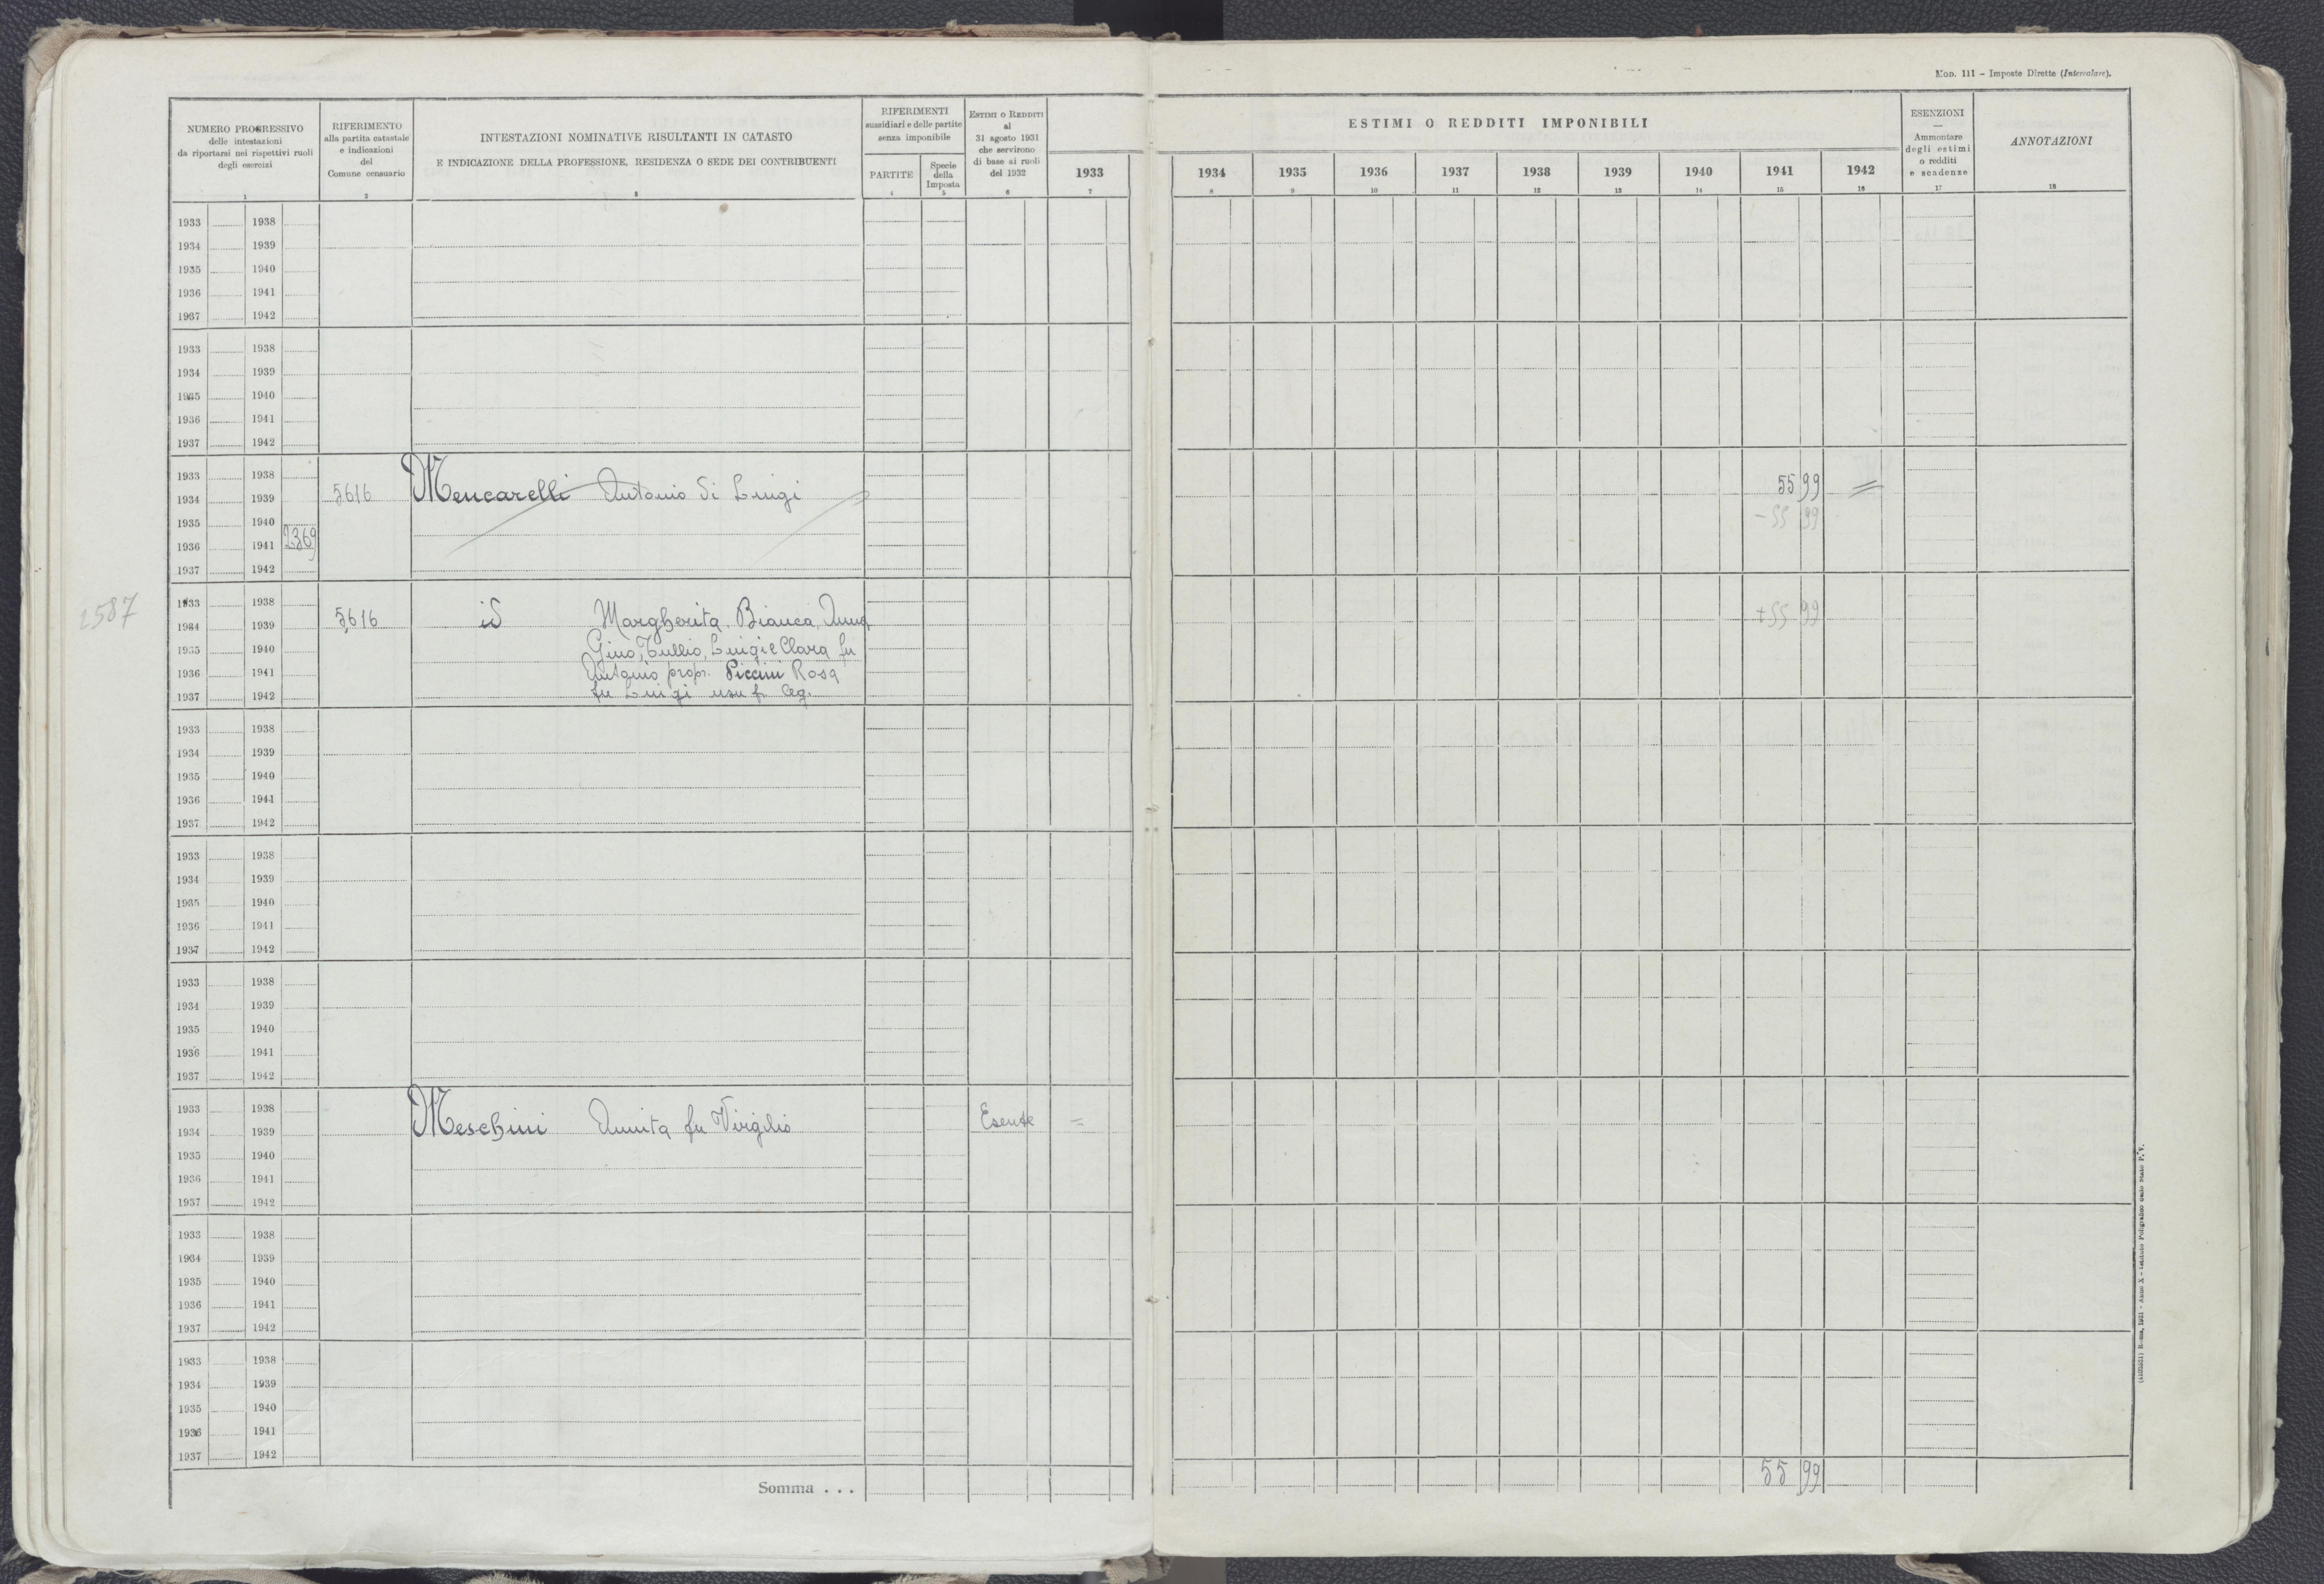 Mod. 111 – Imposte Dirette (Intercalare).
NUMERO PROGRESSIVO
delle intestazioni
da riportarsi nei rispettivi ruoli
degli esercizi
1
RIFERIMENTO
alla partita catastale
e indicazioni
del
Comune censuario
2
INTESTAZIONI NOMINATIVE RISULTANTI IN CATASTO
E INDICAZIONE DELLA PROFESSIONE, RESIDENZA O SEDE DEI CONTRIBUENTI
3
RIFERIMENTI
sussidiari e delle partite
senza imponibile
PARTITE
4
Specie
della
Imposta
5
Estimi o Redditi
al
31 agosto 1931
che servirono
di base ai ruoli
del 1932
6
1933
7
ESTIMI O REDDITI IMPONIBILI
1934 1935 1936 1937 1938 1939 1940 1941 1942
8 9 10 11 12 13 14 15 16
ESENZIONI
—
Ammontare
degli estimi
o redditi
e scadenze
17
ANNOTAZIONI
18
1933 1938
1934 1939
1935 1940
1936 1941
1937 1942
1933 1938
1934 1939
1935 1940
1936 1941
1937 1942
1933 1938
1934 1939 5616 Mencarelli Antonio di Luigi 55 99 =
1935 1940 - 55 99
1936 1941 2369
1937 1942
2587
1933 1938
1934 1939 5616 id Margherita, Bianca, Anna, + 55 99
1935 1940 Gino, Tullio, Luigi e Clara fu
1936 1941 Antonio propr. Piccini Rosa
1937 1942 fu Luigi usufr. leg.
1933 1938
1934 1939
1935 1940
1936 1941
1937 1942
1933 1938
1934 1939
1935 1940
1936 1941
1937 1942
1933 1938
1934 1939
1935 1940
1936 1941
1937 1942
1933 1938
1934 1939 Meschini Annita fu Virgilio Esente =
1935 1940
1936 1941
1937 1942
1933 1938
1934 1939
1935 1940
1936 1941
1937 1942
1933 1938
1934 1939
1935 1940
1936 1941
1937 1942
Somma . . . 55 99
Roma, 1931 - Anno X - Istituto Poligrafico dello Stato P. V.